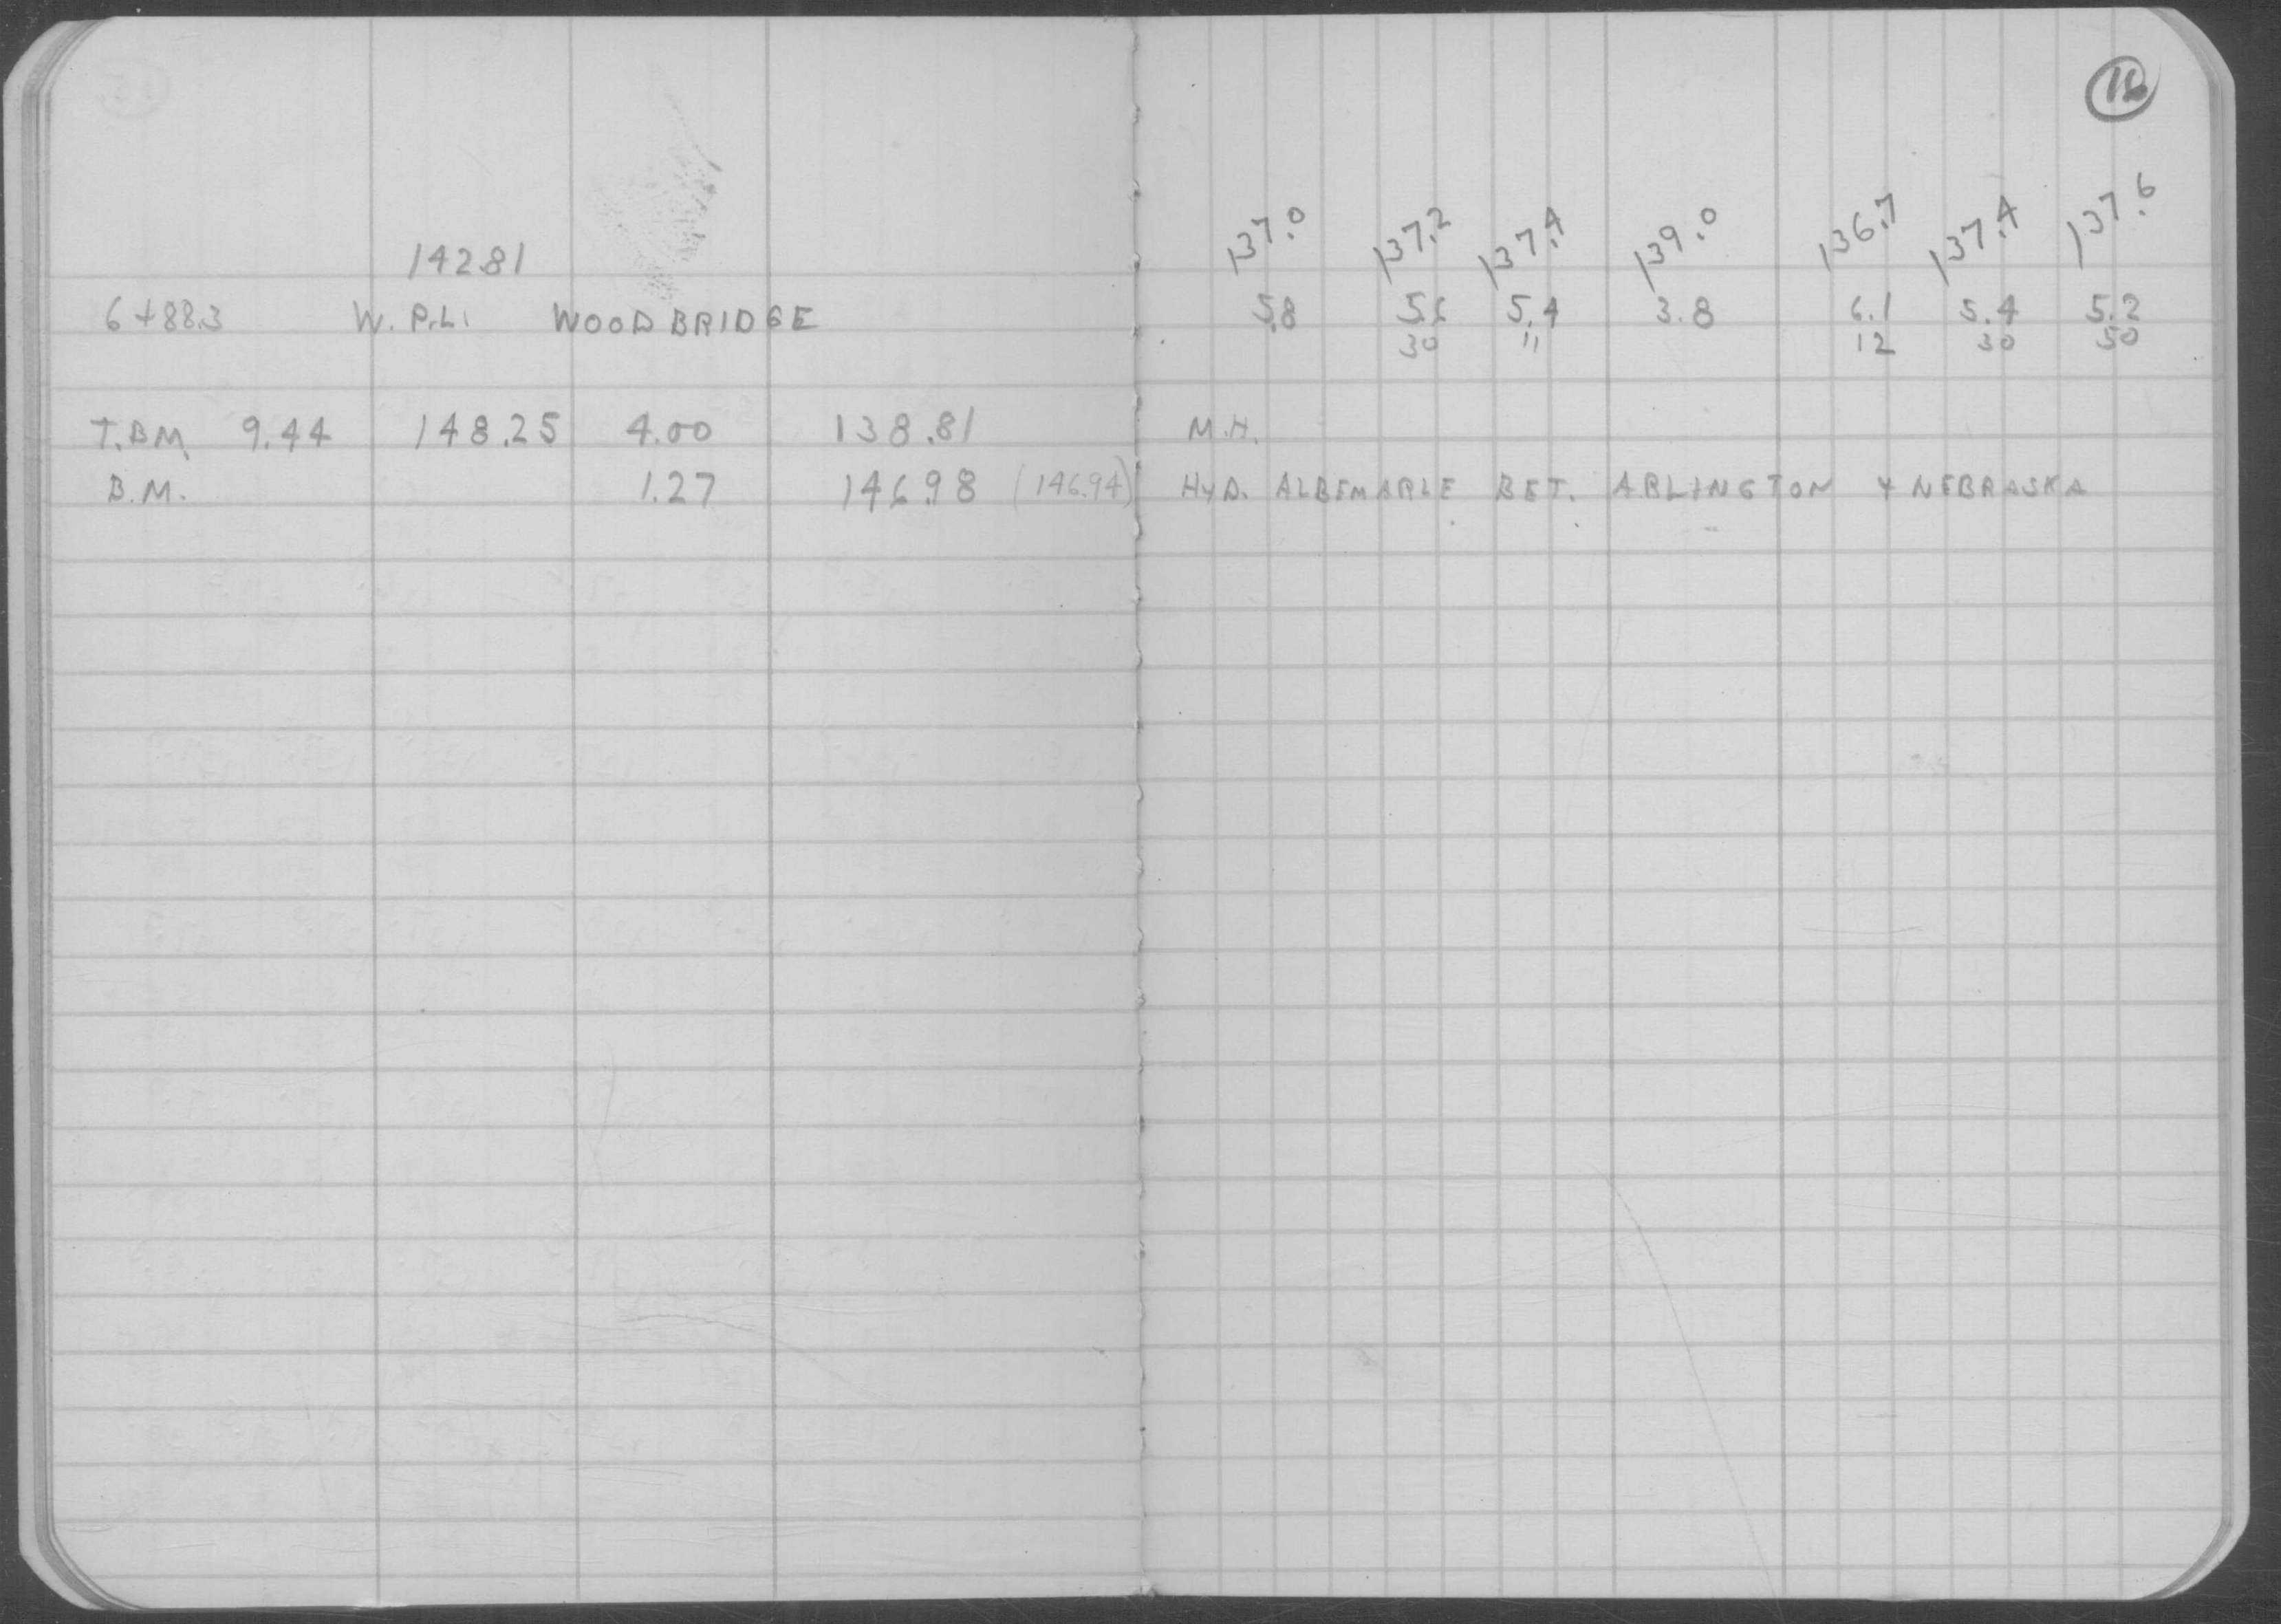 142.81
137.0 137.2 137.4 139.0 136.7 137.4 137.6
6+88.3 W. P.L. WOODBRIDGE 5.8 5.6 5.4 3.8 6.1 5.4 5.2
30 11 12 30 50
T.B.M. 9.44 148.25 4.00 138.81 M.H.
B.M. 1.27 146.98 (146.94) HYD. ALBEMARLE BET. ARLINGTON & NEBRASKA